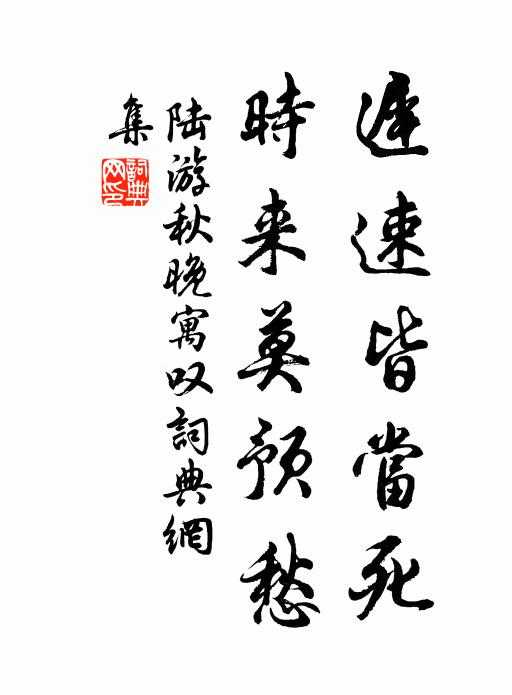 遲速皆當死
時来莫預愁
陆游秋晚寓叹詞典網
集
詞典網印